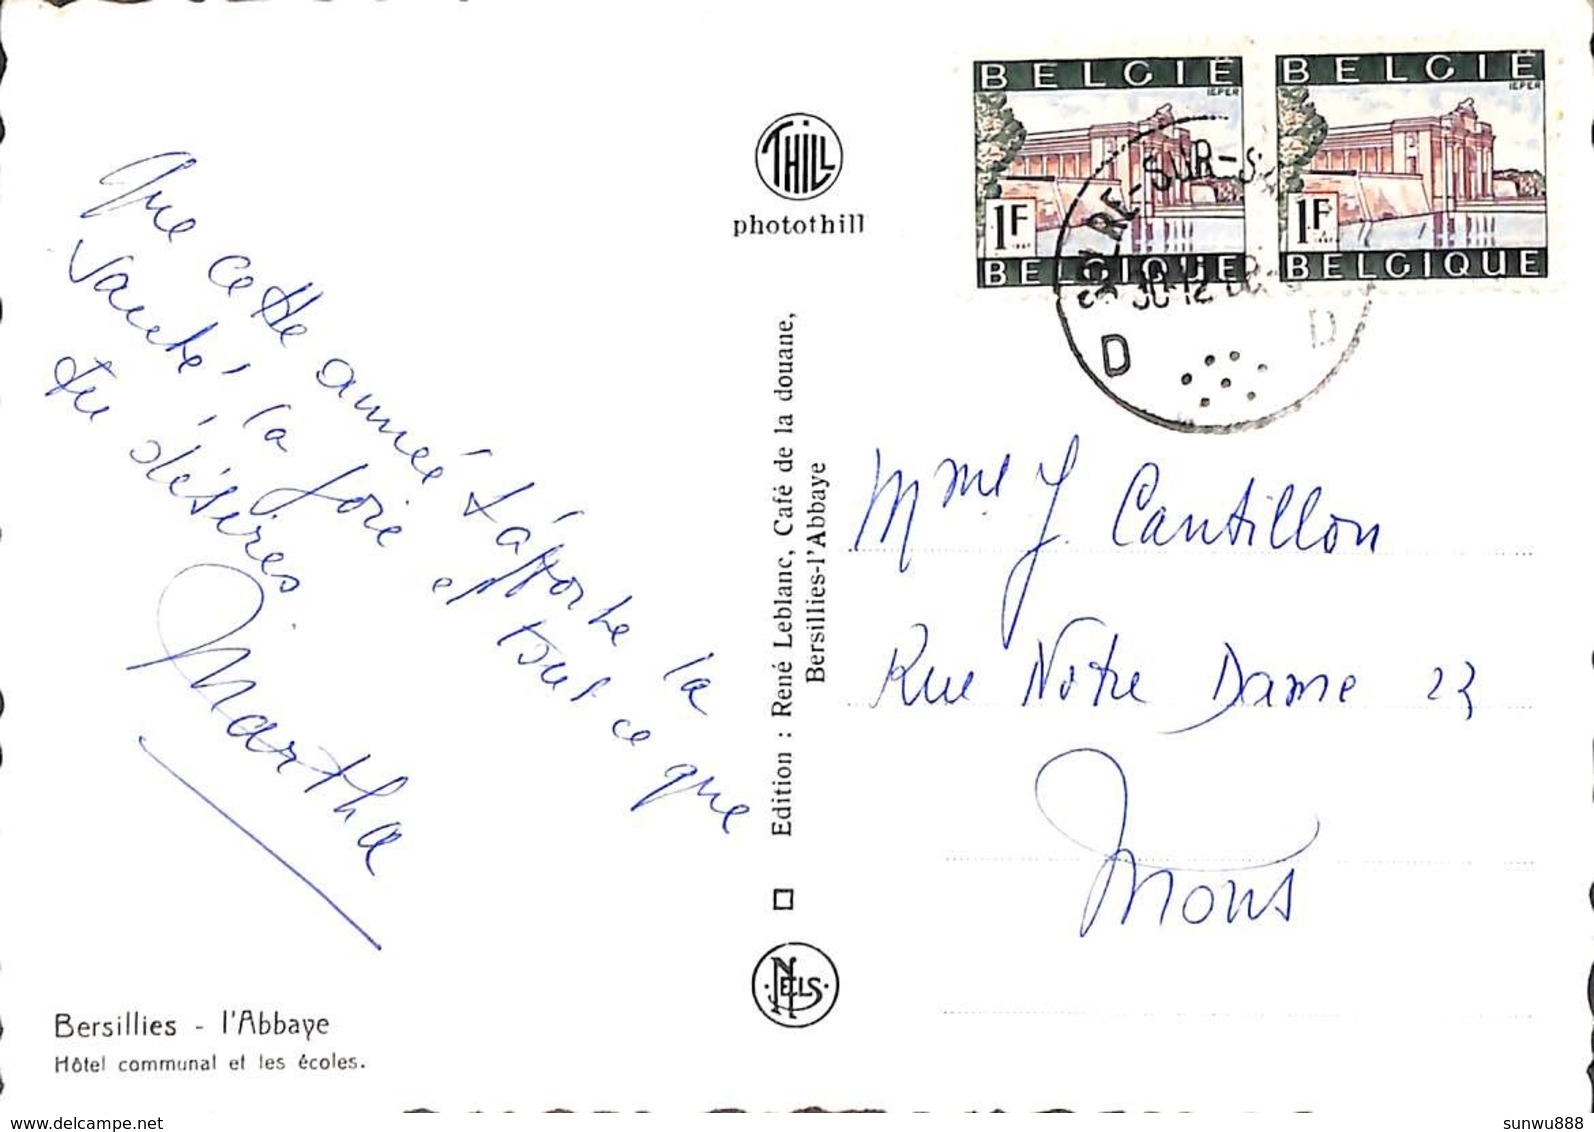 Que cette année t'apporte la
santé, la joie et tout ce que
tu désires.
Martha
Bersillies - l'Abbaye
Hôtel communal et les écoles.
THILL
photothill
Edition : René Leblanc, Café de la douane,
Bersillies-l'Abbaye
NELS
BELGIË
IEPER
1F
BELGIQUE
BELGIË
IEPER
1F
BELGIQUE
RE-SUR-S
D D
Mme J. Cantillon
Rue Notre Dame 23
Mons
sunwu888